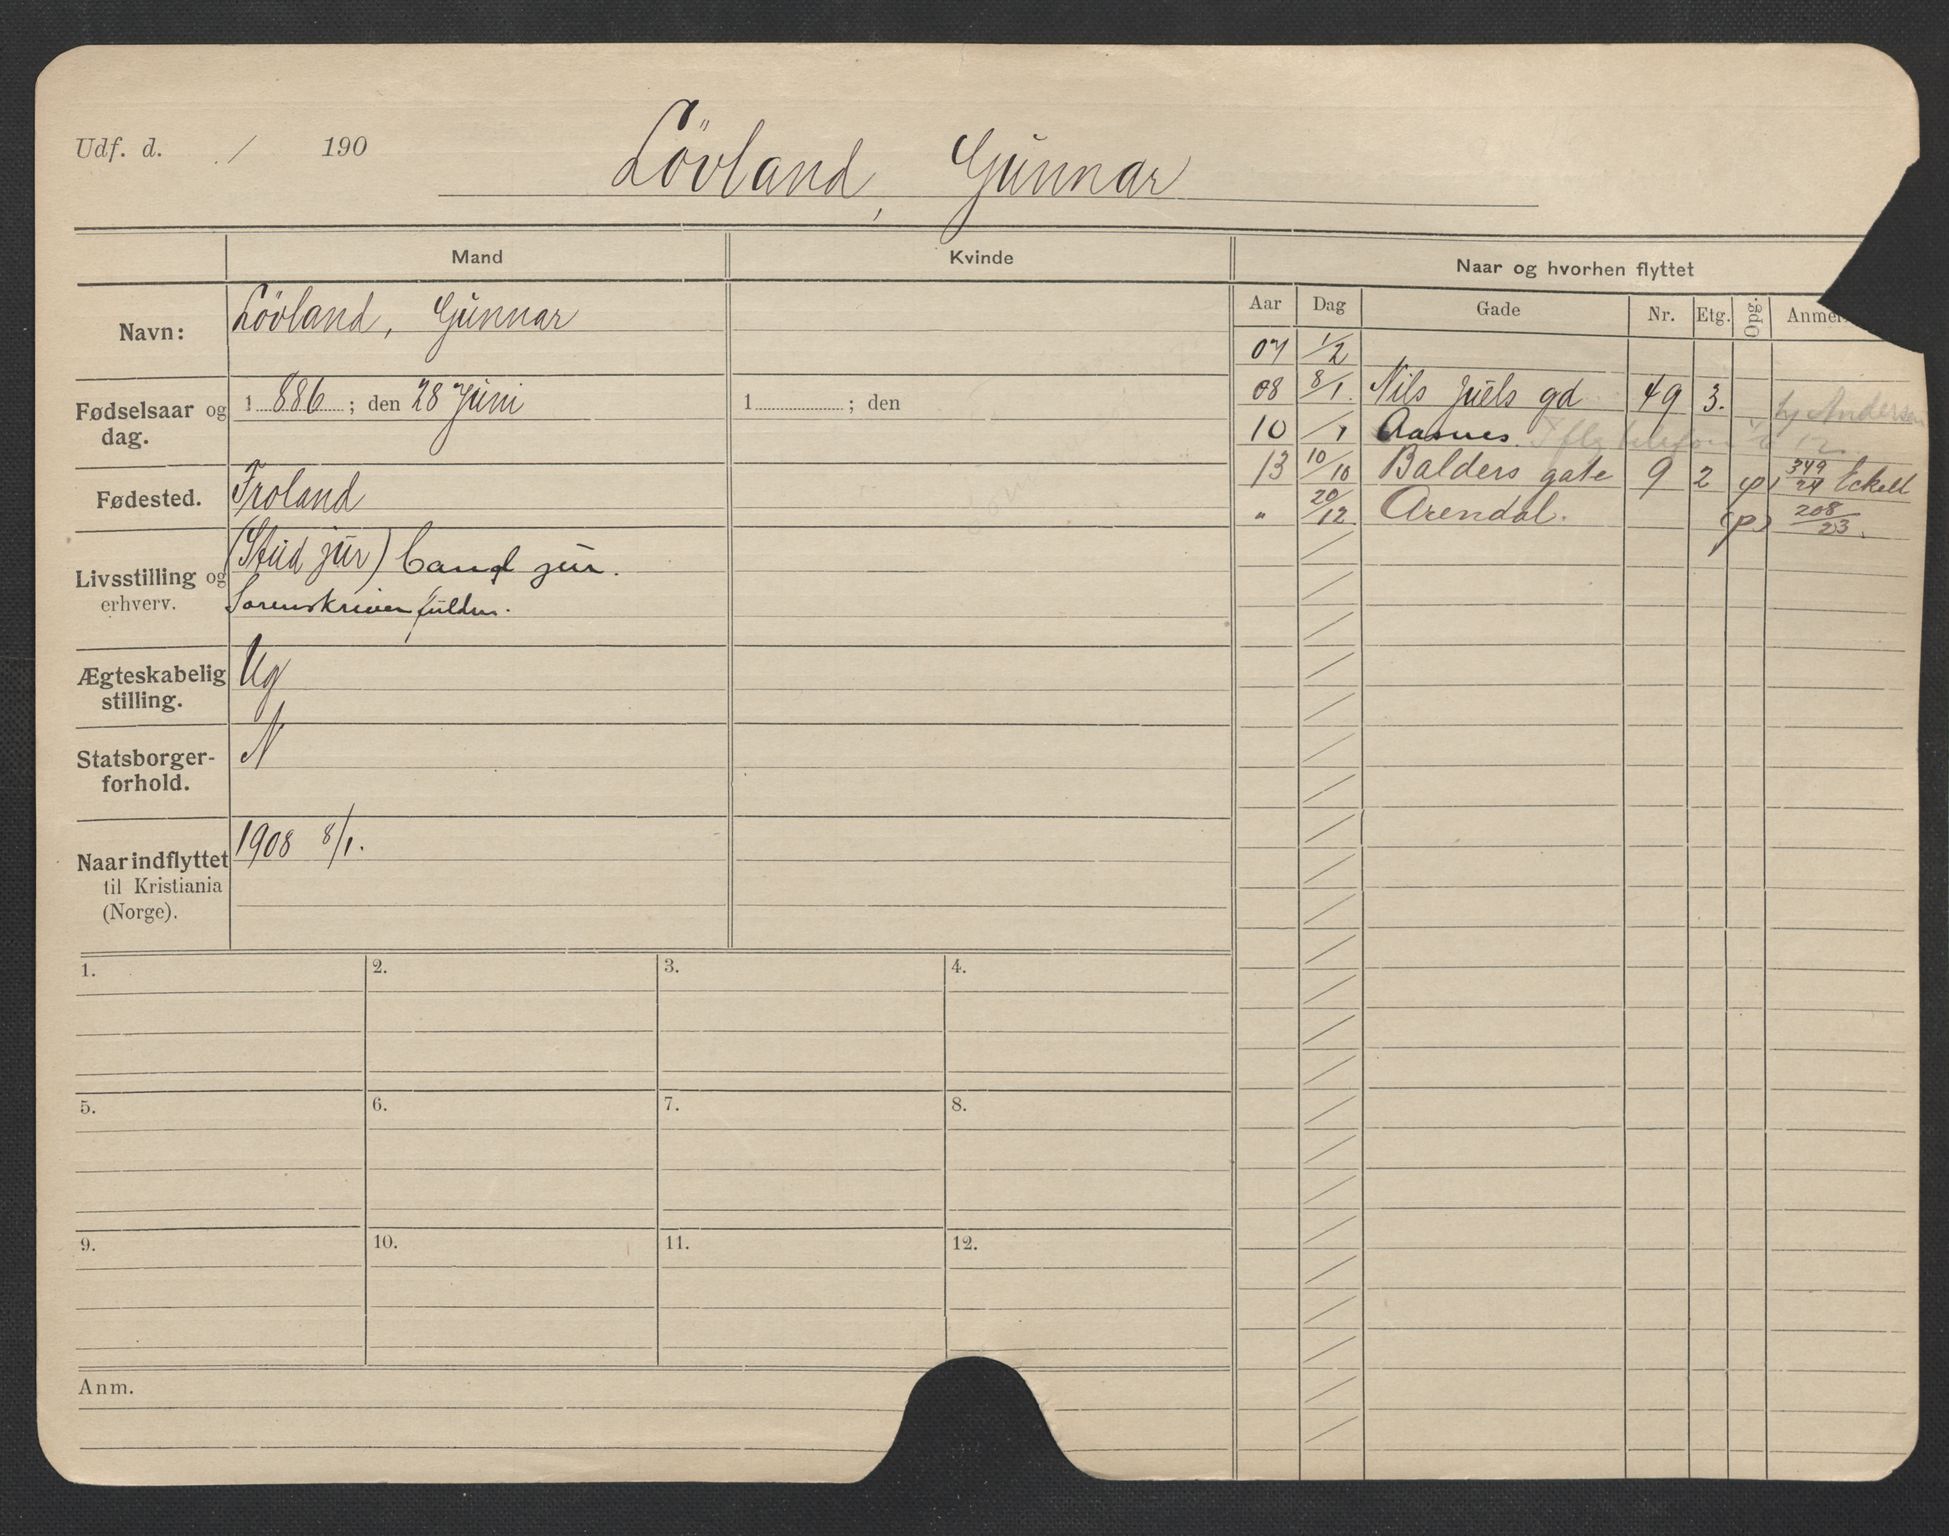 Udf. d. / 190
Lövland, Gunnar
Mand
Kvinde
Naar og hvorhen flyttet
Navn: Lövland, Gunnar
Fødselsaar og dag. 1886; den 28 Juni
1 ; den
Fødested. Froland
Livsstilling og erhverv. (Stud jur) Cand jur.
Sorenskriverfuldm.
Ægteskabelig stilling. Ug
Statsborgerforhold. N
Naar indflyttet til Kristiania (Norge). 1908 8/1.
Aar Dag Gade Nr. Etg. Opg. Anmer
07 1/2
08 8/1. Nils Juels gd 49 3. Andersen
10 /1 Aasnes.
13 10/10 Balders gate 9 2 (p) 349/24 Eckell
" 20/12 Arendal. (p) 208/23.
1. 2. 3. 4.
5. 6. 7. 8.
9. 10. 11. 12.
Anm.